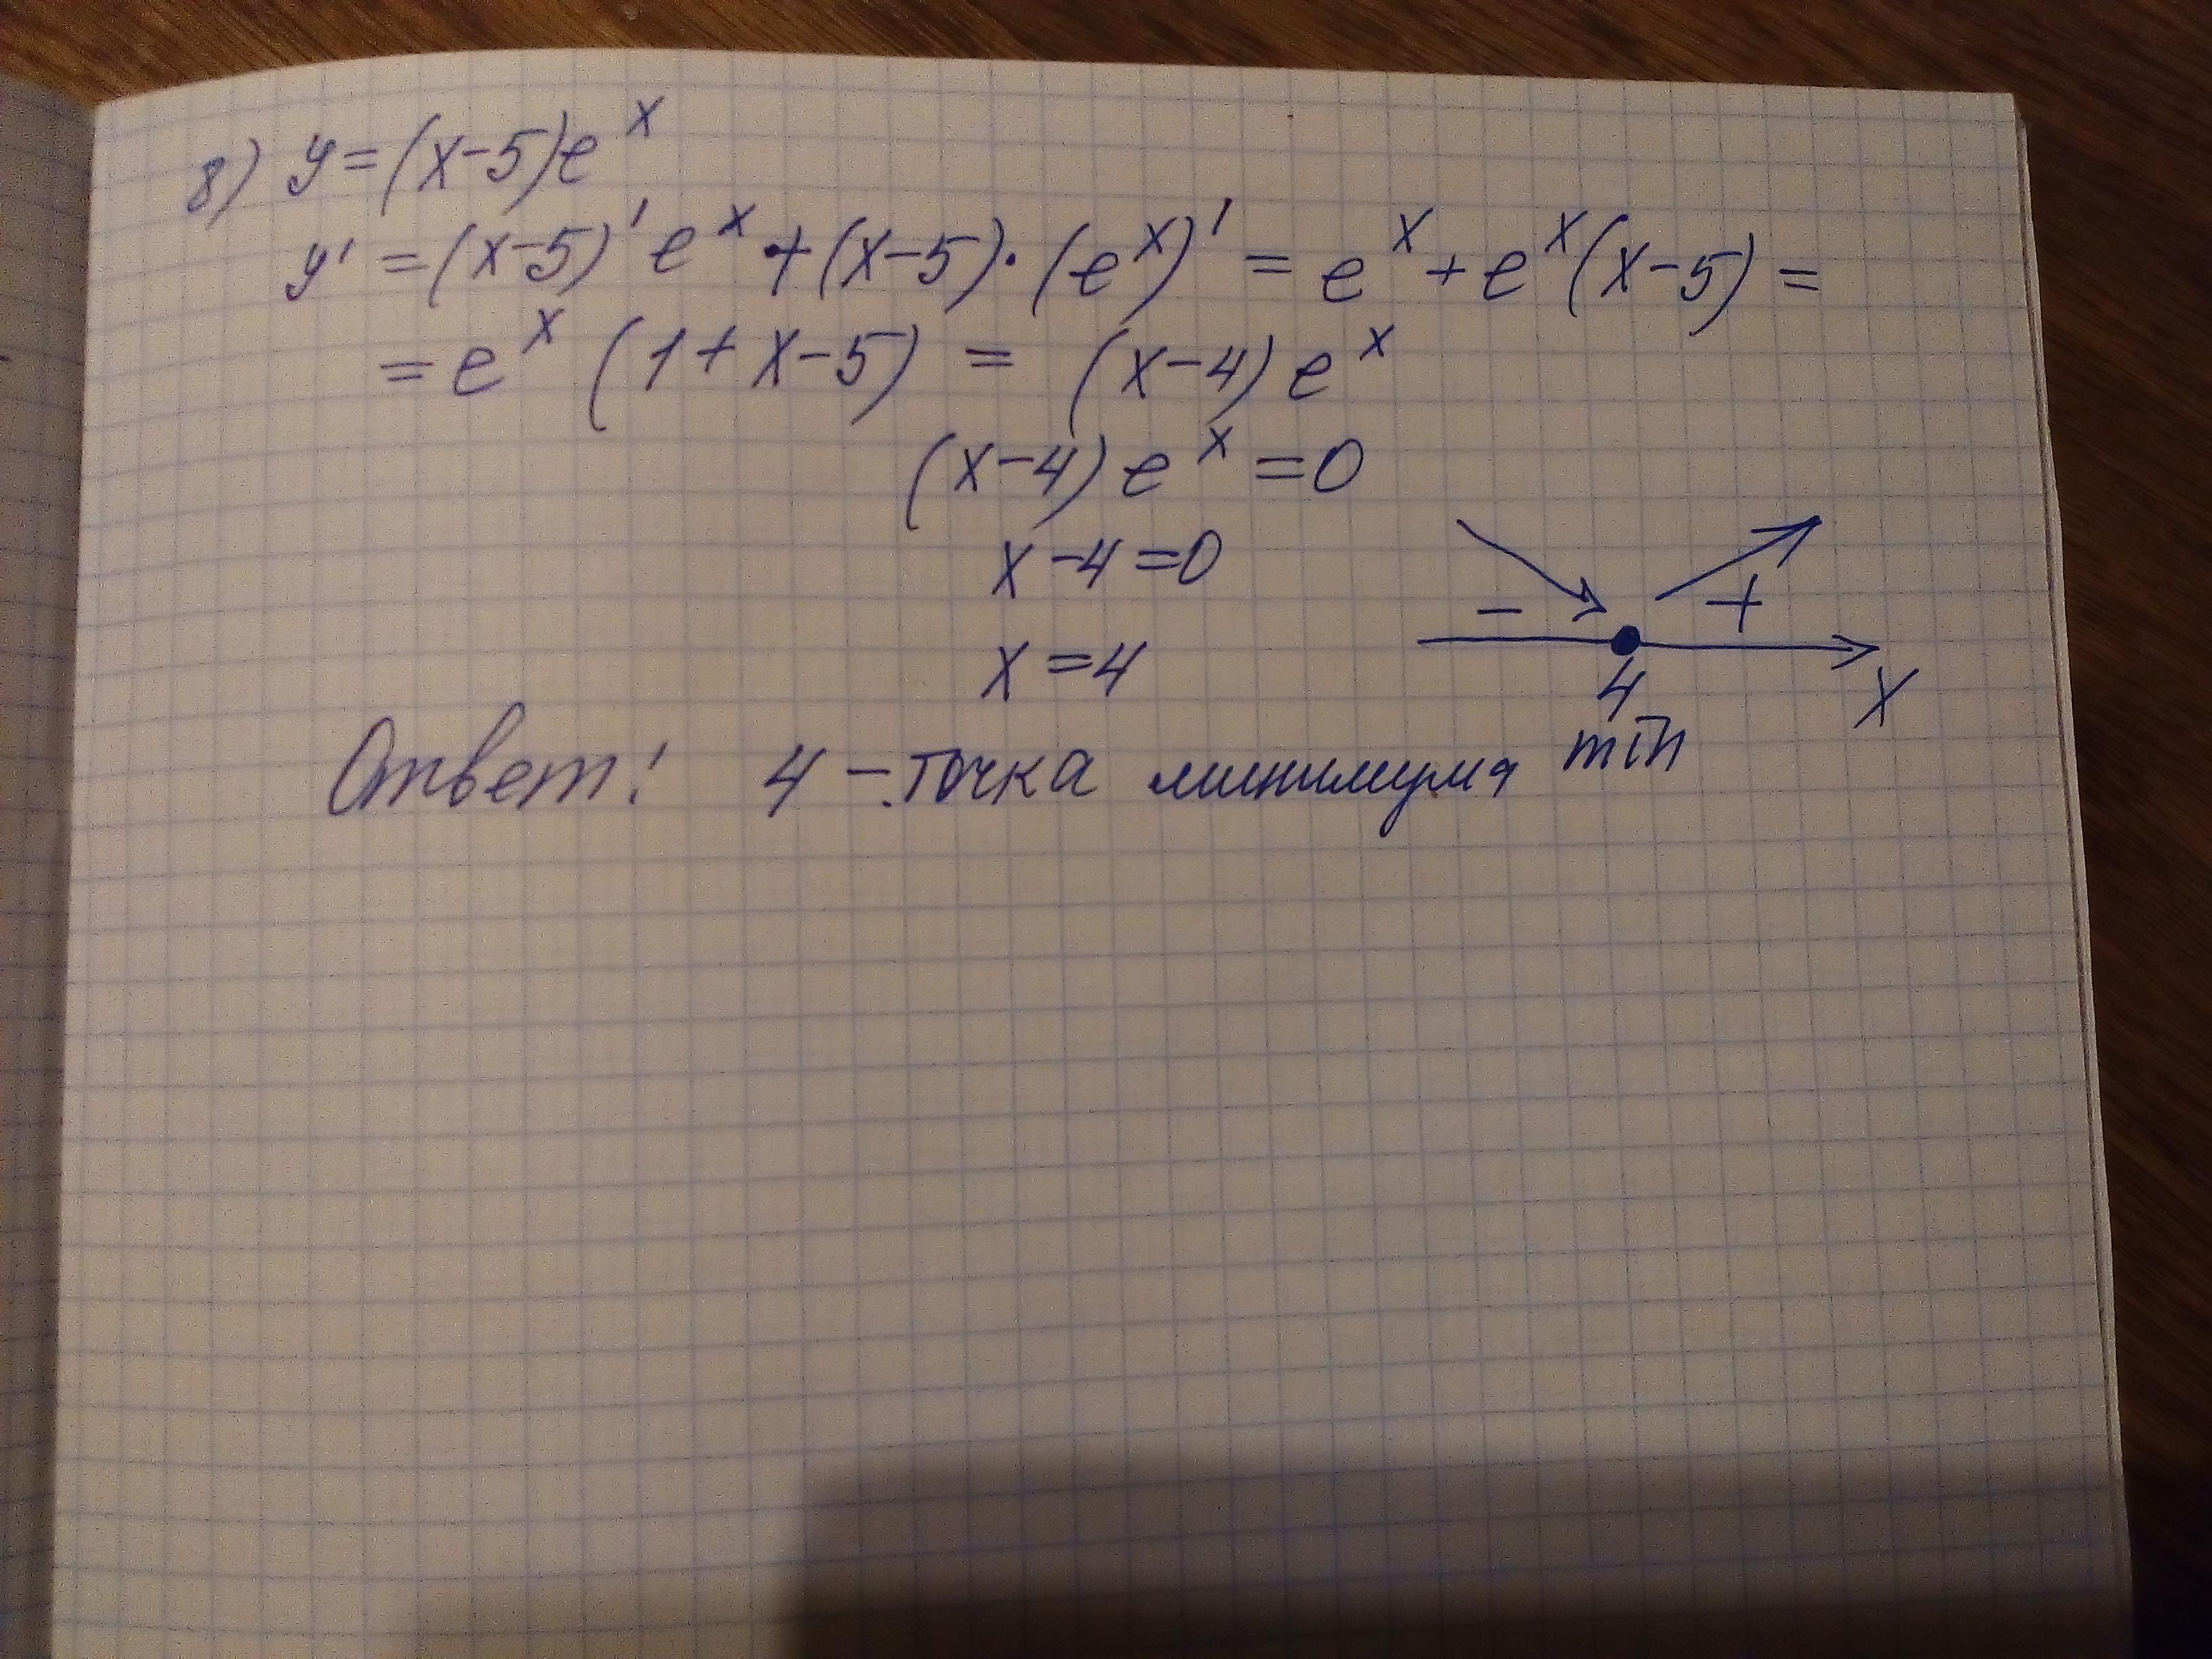 8) y=(x-5)e^x
y' =(x-5)'e^x+(x-5)·(e^x)' = e^x+e^x(x-5)=
=e^x (1+x-5) = (x-4)e^x
(x-4)e^x=0
x-4=0
- +
x=4
4 x
min
Ответ: 4 - точка минимума